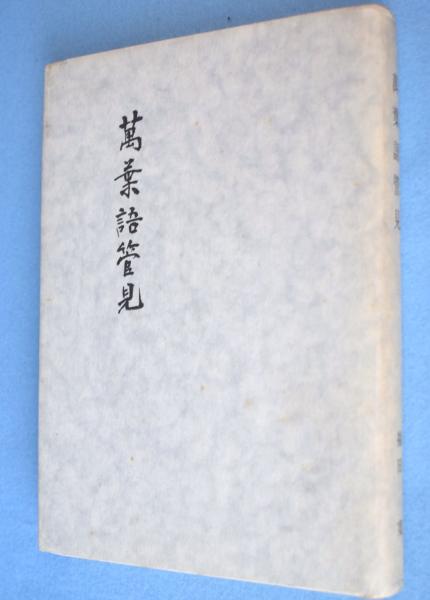 萬葉語管見
萬葉語管見